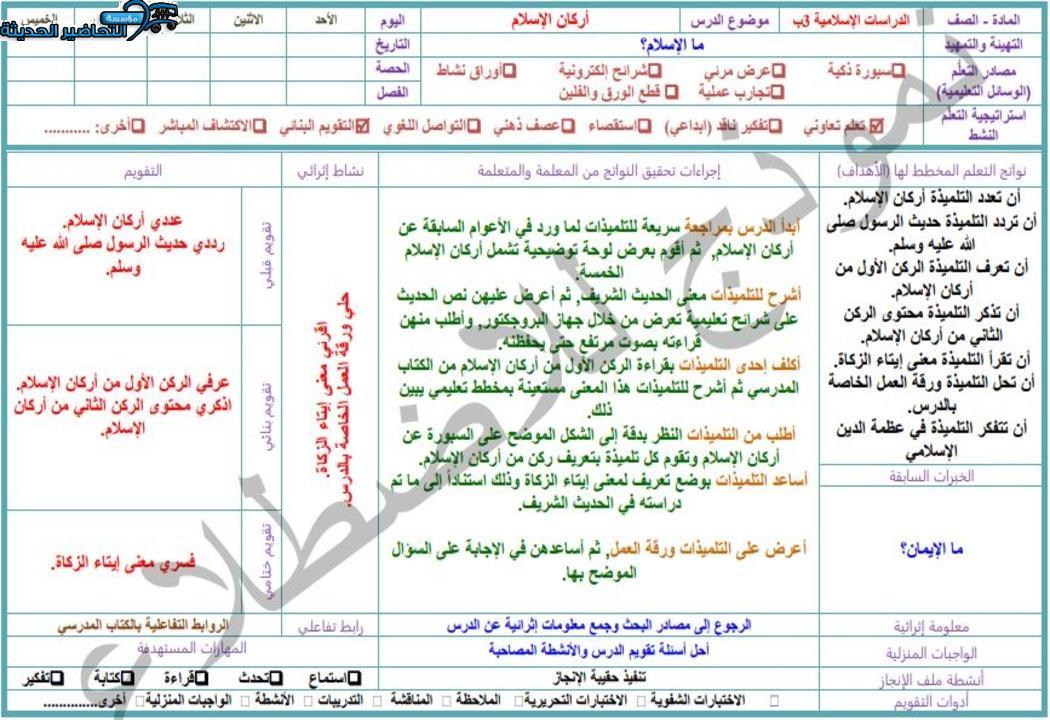 المادة - الصف
الدراسات الإسلامية 3ب
موضوع الدرس
أركان الإسلام
اليوم
الأحد
الاثنين
الخميس
مؤسسة
التحاضير الحديثة
التهيئة والتمهيد
ما الإسلام؟
التاريخ
مصادر التعلم
(الوسائل التعليمية)
سبورة ذكية
عرض مرئي
شرائح إلكترونية
أوراق نشاط
الحصة
تجارب عملية
قطع الورق والفلين
الفصل
استراتيجية التعلم
النشط
☑ تعلم تعاوني ☐ تفكير ناقد (ابداعي) ☐ استقصاء ☐ عصف ذهني ☐ التواصل اللغوي ☑ التقويم البنائي ☐ الاكتشاف المباشر ☐ أخرى: ...........
نواتج التعلم المخطط لها (الأهداف)
إجراءات تحقيق النواتج من المعلمة والمتعلمة
نشاط إثرائي
التقويم
أن تعدد التلميذة أركان الإسلام.
أن تردد التلميذة حديث الرسول صلى
الله عليه وسلم.
أن تعرف التلميذة الركن الأول من
أركان الإسلام.
أن تذكر التلميذة محتوى الركن
الثاني من أركان الإسلام.
أن تقرأ التلميذة معنى إيتاء الزكاة.
أن تحل التلميذة ورقة العمل الخاصة
بالدرس.
أن تتفكر التلميذة في عظمة الدين
الإسلامي
الخبرات السابقة
ما الإيمان؟
أبدأ الدرس بمراجعة سريعة للتلميذات لما ورد في الأعوام السابقة عن
أركان الإسلام, ثم أقوم بعرض لوحة توضيحية تشمل أركان الإسلام
الخمسة.
أشرح للتلميذات معنى الحديث الشريف, ثم أعرض عليهن نص الحديث
على شرائح تعليمية تعرض من خلال جهاز البروجكتور, وأطلب منهن
قراءته بصوت مرتفع حتى يحفظنه.
أكلف إحدى التلميذات بقراءة الركن الأول من أركان الإسلام من الكتاب
المدرسي ثم أشرح للتلميذات هذا المعنى مستعينة بمخطط تعليمي يبين
ذلك.
أطلب من التلميذات النظر بدقة إلى الشكل الموضح على السبورة عن
أركان الإسلام وتقوم كل تلميذة بتعريف ركن من أركان الإسلام.
أساعد التلميذات بوضع تعريف لمعنى إيتاء الزكاة وذلك استناداً إلى ما تم
دراسته في الحديث الشريف.
أعرض على التلميذات ورقة العمل, ثم أساعدهن في الإجابة على السؤال
الموضح بها.
اقرئي معنى إيتاء الزكاة.
حلي ورقة العمل الخاصة بالدرس.
تقويم قبلي
عددي أركان الإسلام.
رددي حديث الرسول صلى الله عليه
وسلم.
تقويم بنائي
عرفي الركن الأول من أركان الإسلام.
اذكري محتوى الركن الثاني من أركان
الإسلام.
تقويم ختامي
فسري معنى إيتاء الزكاة.
معلومة إثرائية
الرجوع إلى مصادر البحث وجمع معلومات إثرائية عن الدرس
رابط تفاعلي
الروابط التفاعلية بالكتاب المدرسي
الواجبات المنزلية
أحل أسئلة تقويم الدرس والأنشطة المصاحبة
المهارات المستهدفة
أنشطة ملف الإنجاز
تنفيذ حقيبة الإنجاز
☐استماع ☐تحدث ☐قراءة ☐كتابة ☐تفكير
أدوات التقويم
☐ الاختبارات الشفوية ☐ الاختبارات التحريرية ☐ الملاحظة ☐ المناقشة ☐ التدريبات ☐ الأنشطة ☐ الواجبات المنزلية ☐ أخرى..............
نموذج للاضطلاع